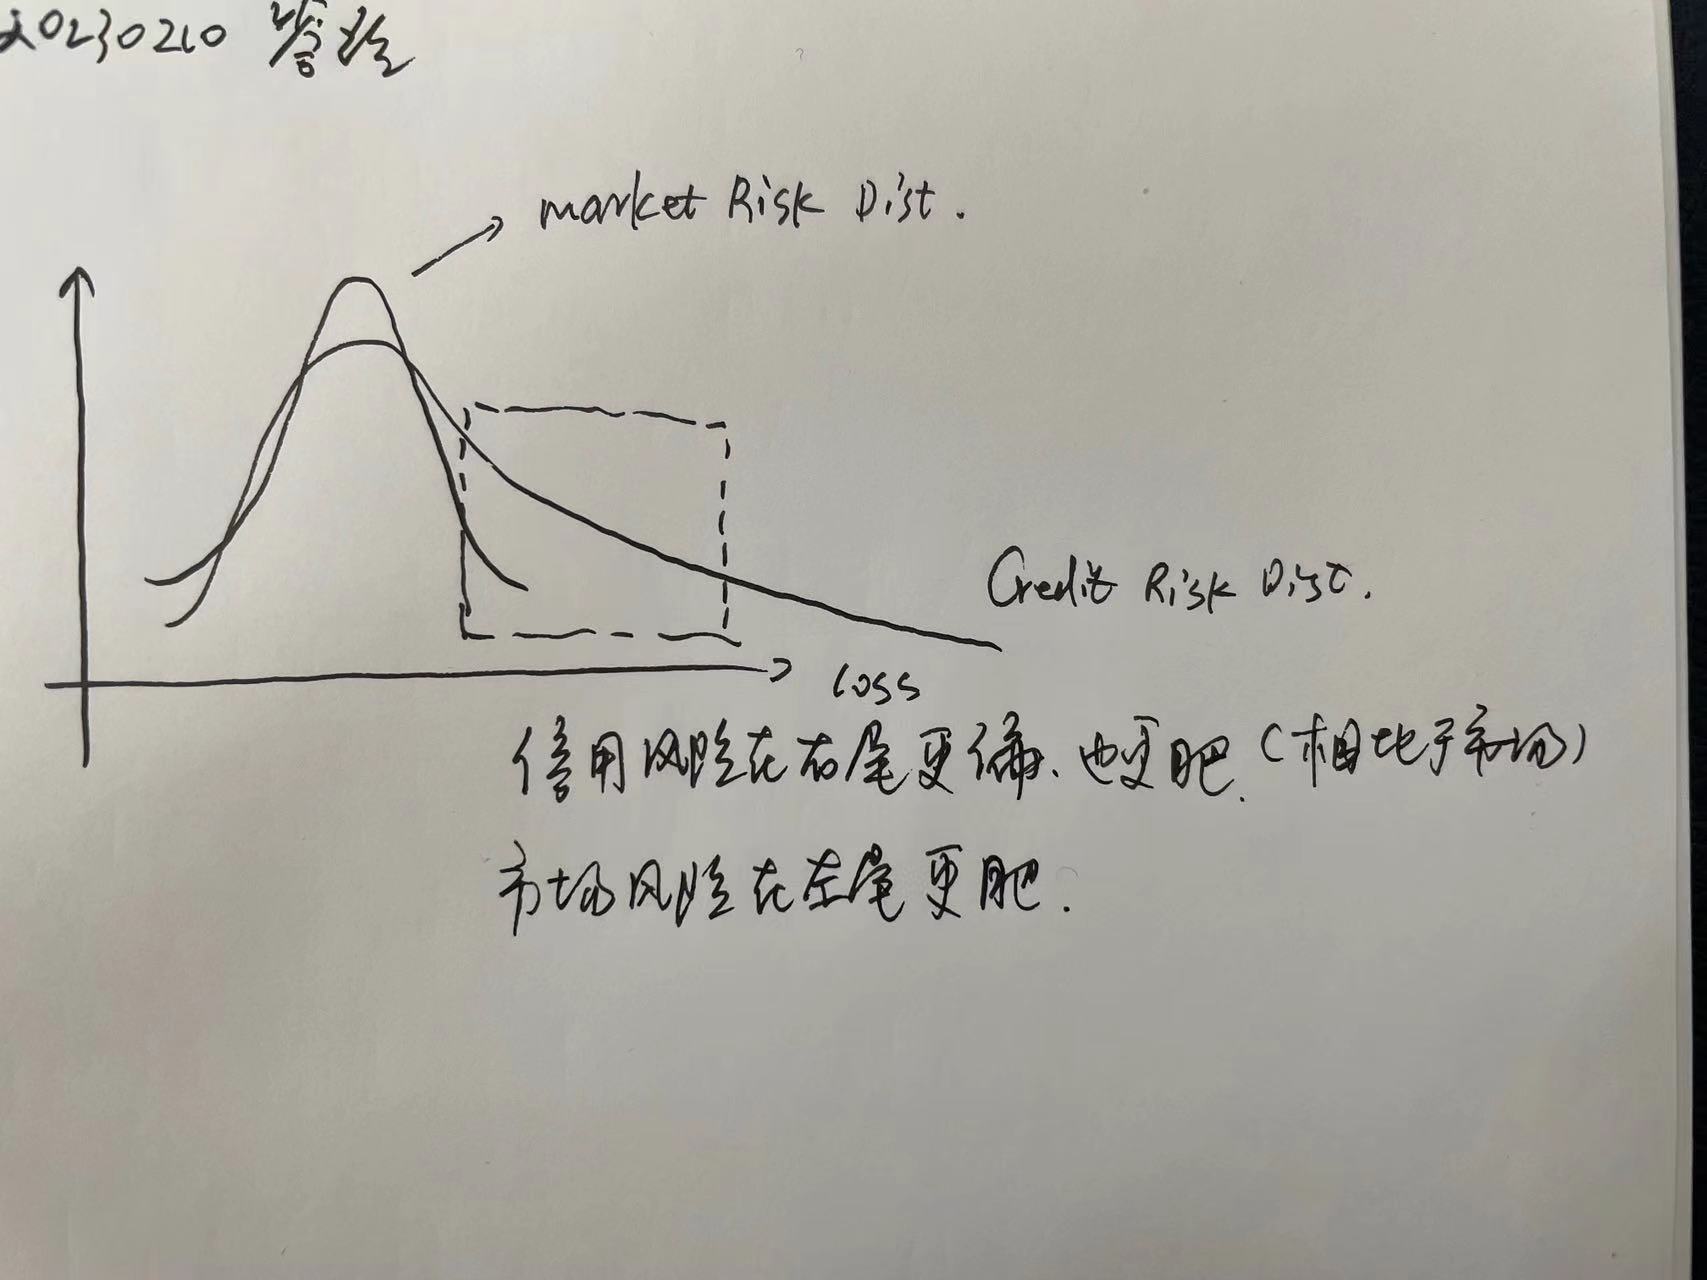 20230210 答疑
market Risk Dist.
Credit Risk Dist.
loss
信用风险在右尾更偏、也更肥.(相比于市场)
市场风险在左尾更肥.